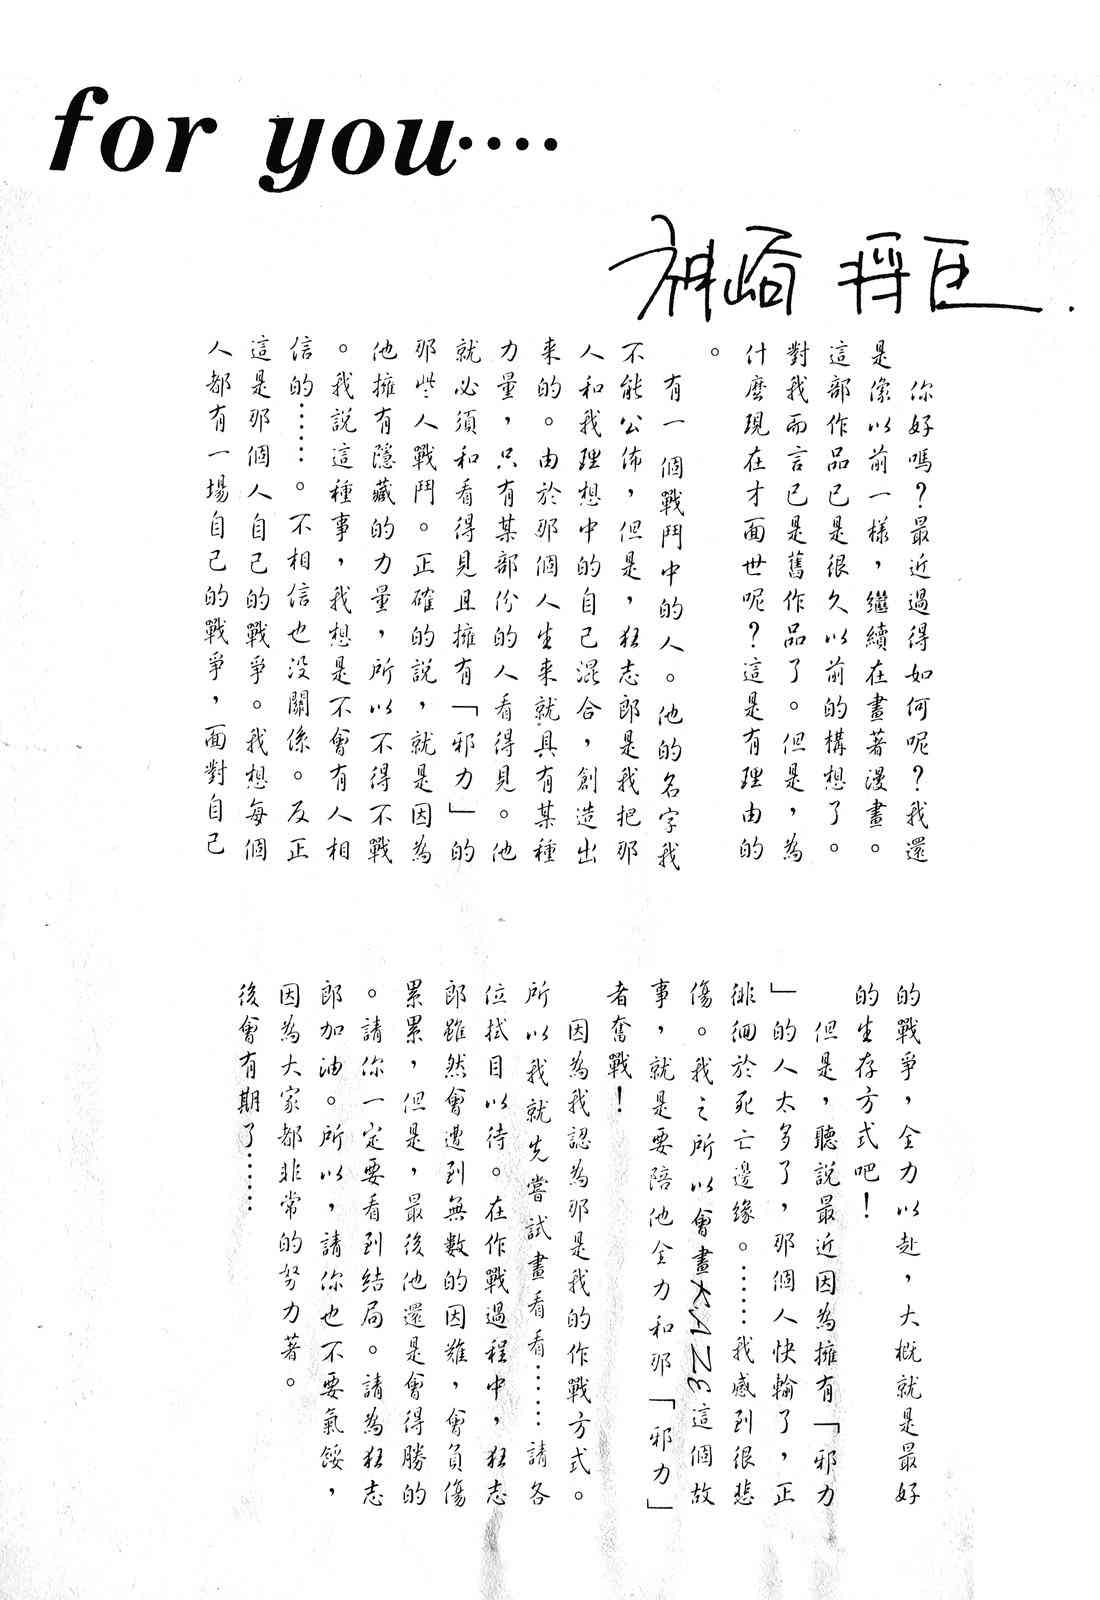 for you····
神崎将臣.
你好嗎？最近過得如何呢？我還
是像以前一樣，繼續在畫著漫畫。
這部作品已是很久以前的構想了。
對我而言已是舊作品了。但是，為
什麼現在才面世呢？這是有理由的
。
有一個戰鬥中的人。他的名字我
不能公佈，但是，狂志郎是我把那
人和我理想中的自己混合，創造出
來的。由於那個人生來就具有某種
力量，只有某部份的人看得見。他
就必須和看得見且擁有「邪力」的
那些人戰鬥。正確的說，就是因為
他擁有隱藏的力量，所以不得不戰
。我說這種事，我想是不會有人相
信的……。不相信也没關係。反正
這是那個人自己的戰爭。我想每個
人都有一場自己的戰爭，面對自己
的戰爭，全力以赴，大概就是最好
的生存方式吧！
但是，聽說最近因為擁有「邪力
」的人太多了，那個人快輸了，正
徘徊於死亡邊緣。……我感到很悲
傷。我之所以會畫KAZE這個故
事，就是要陪他全力和那「邪力」
者奮戰！
因為我認為那是我的作戰方式。
所以我就先嘗試畫看看……請各
位拭目以待。在作戰過程中，狂志
郎雖然會遭到無數的困難，會負傷
累累，但是，最後他還是會得勝的
。請你一定要看到結局。請為狂志
郎加油。所以，請你也不要氣餒，
因為大家都非常的努力著。
後會有期了……